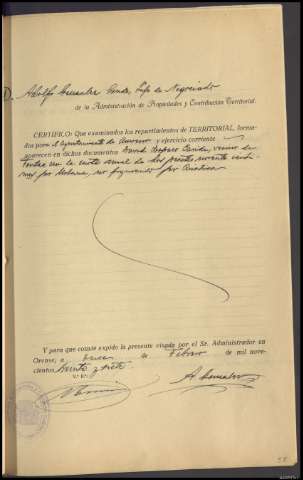 D. Adolfo González Conde, Jefe de Negociado
de la Administración de Propiedades y Contribución Territorial.
CERTIFICO: Que examinados los repartimientos de TERRITORIAL, forma-
dos para el Ayuntamiento de y ejercicio corriente
aparecen en dichos documentos David vecino de
con la cuota anual de dos pesetas noventa cénti-
mos por Urbana, no figurando por Rústica
Y para que conste expido la presente visada por el Sr. Administrador en
Orense, a once de Febrero de mil nove-
cientos treinta y siete
V.º B.º
A. González